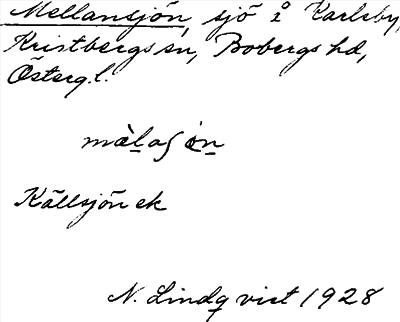 Mellansjön, sjö i Karlsby,
Kristbergs sn, Bobergs hd,
Österg. l.
Källsjön ek
N. Lindqvist 1928